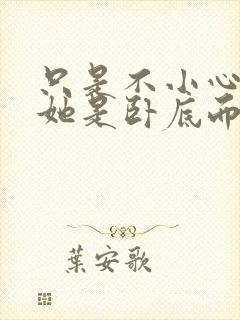 只是不小心
她是卧底而
葉安歌